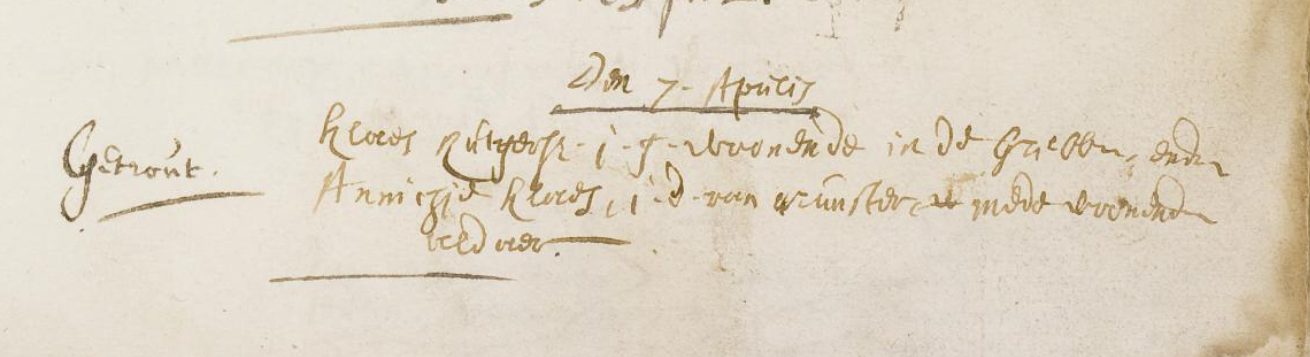 Den 7 - Aprilis
Getrout.
Klaes Rutgersz - j - g - woonende in de Grebbe, ende
Annichje Klaes, j - d - van Munster, mede woonende
aldaer.